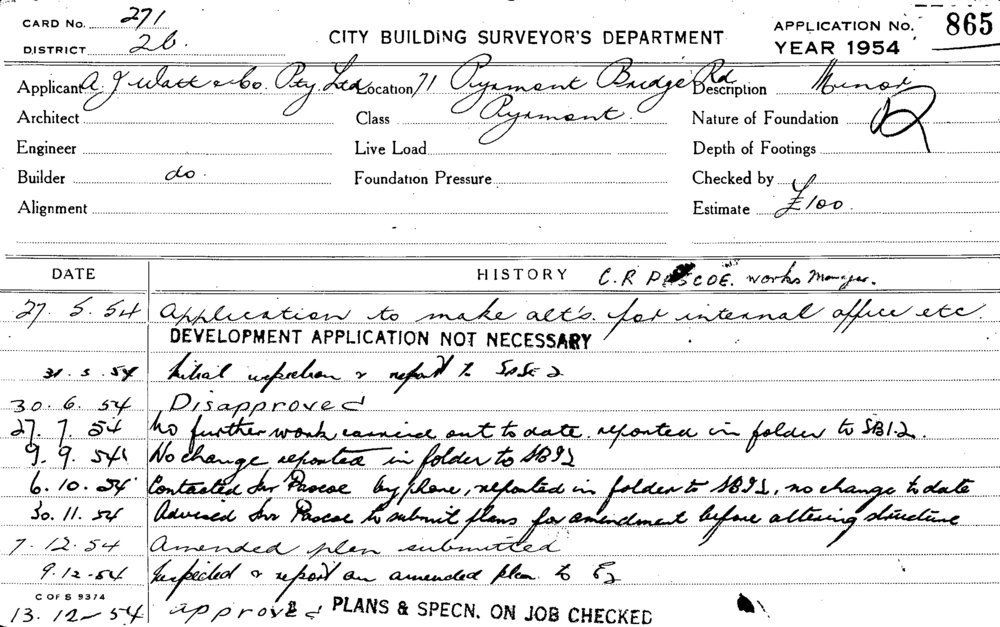 CARD No. 271
DISTRICT 2b.
CITY BUILDING SURVEYOR'S DEPARTMENT
APPLICATION No. 865
YEAR 1954
Applicant A. J Watt & Co. Pty. Ltd Location 71 Pyrmont Bridge Rd Description Minor
Architect Class Pyrmont. Nature of Foundation
Engineer Live Load Depth of Footings
Builder do. Foundation Pressure Checked by
Alignment Estimate £100.
DATE HISTORY C.R PASCOE. works Manager.
27. 5. 54 Application to make alt's. for internal office etc.
DEVELOPMENT APPLICATION NOT NECESSARY
31. 5. 54 Initial inspection & report to
30. 6. 54 Disapproved
27. 7. 54 No further work carried out to date. reported in folder to SBI.2.
9. 9. 54 No change reported in folder to SBI2
6. 10. 54 Contacted Mr Pascoe by phone, reported in folder to SBI2, no change to date
30. 11. 54 Advised Mr Pascoe to submit plans for amendment before altering structure
7. 12. 54 Amended plan submitted
9. 12. 54 Inspected & report on amended plan to
C OF S 9374
13. 12 - 54 approved PLANS & SPECN. ON JOB CHECKED